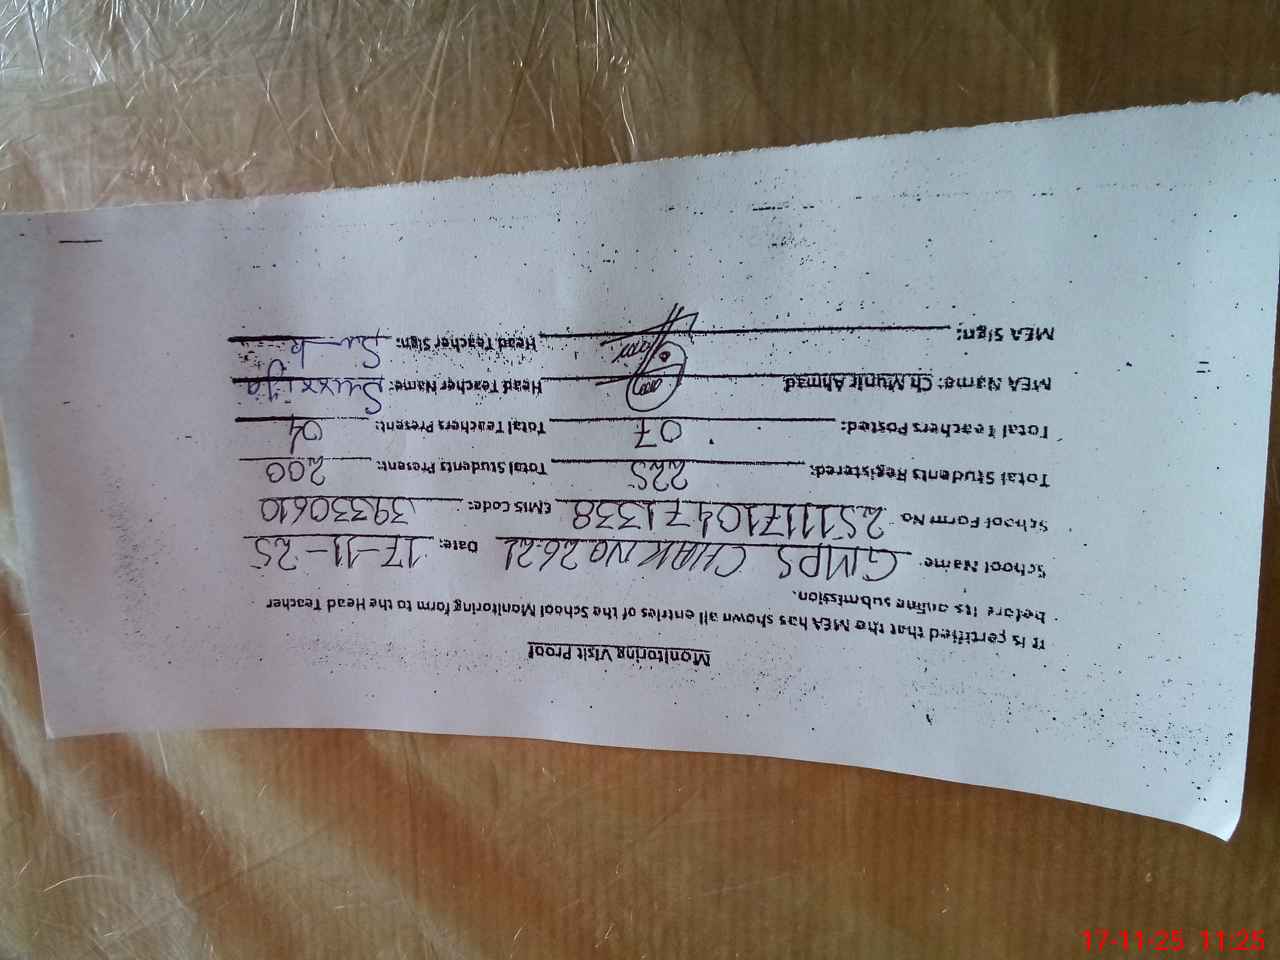 Monitoring Visit Proof
It is certified that the MEA has shown all entries of the School Monitoring form to the Head Teacher
before its online submission.
School Name GMPS CHAK NO 26.2L Date: 17-11-25
School Form No. 25111710471338 EMIS Code: 39330610
Total Students Registered: 225 Total Students Present: 200
Total Teachers Posted: 07 Total Teachers Present: 04
MEA Name: Ch Munir Ahmad Head Teacher Name:
MEA Sign: Head Teacher Sign:
17-11-25 11:25